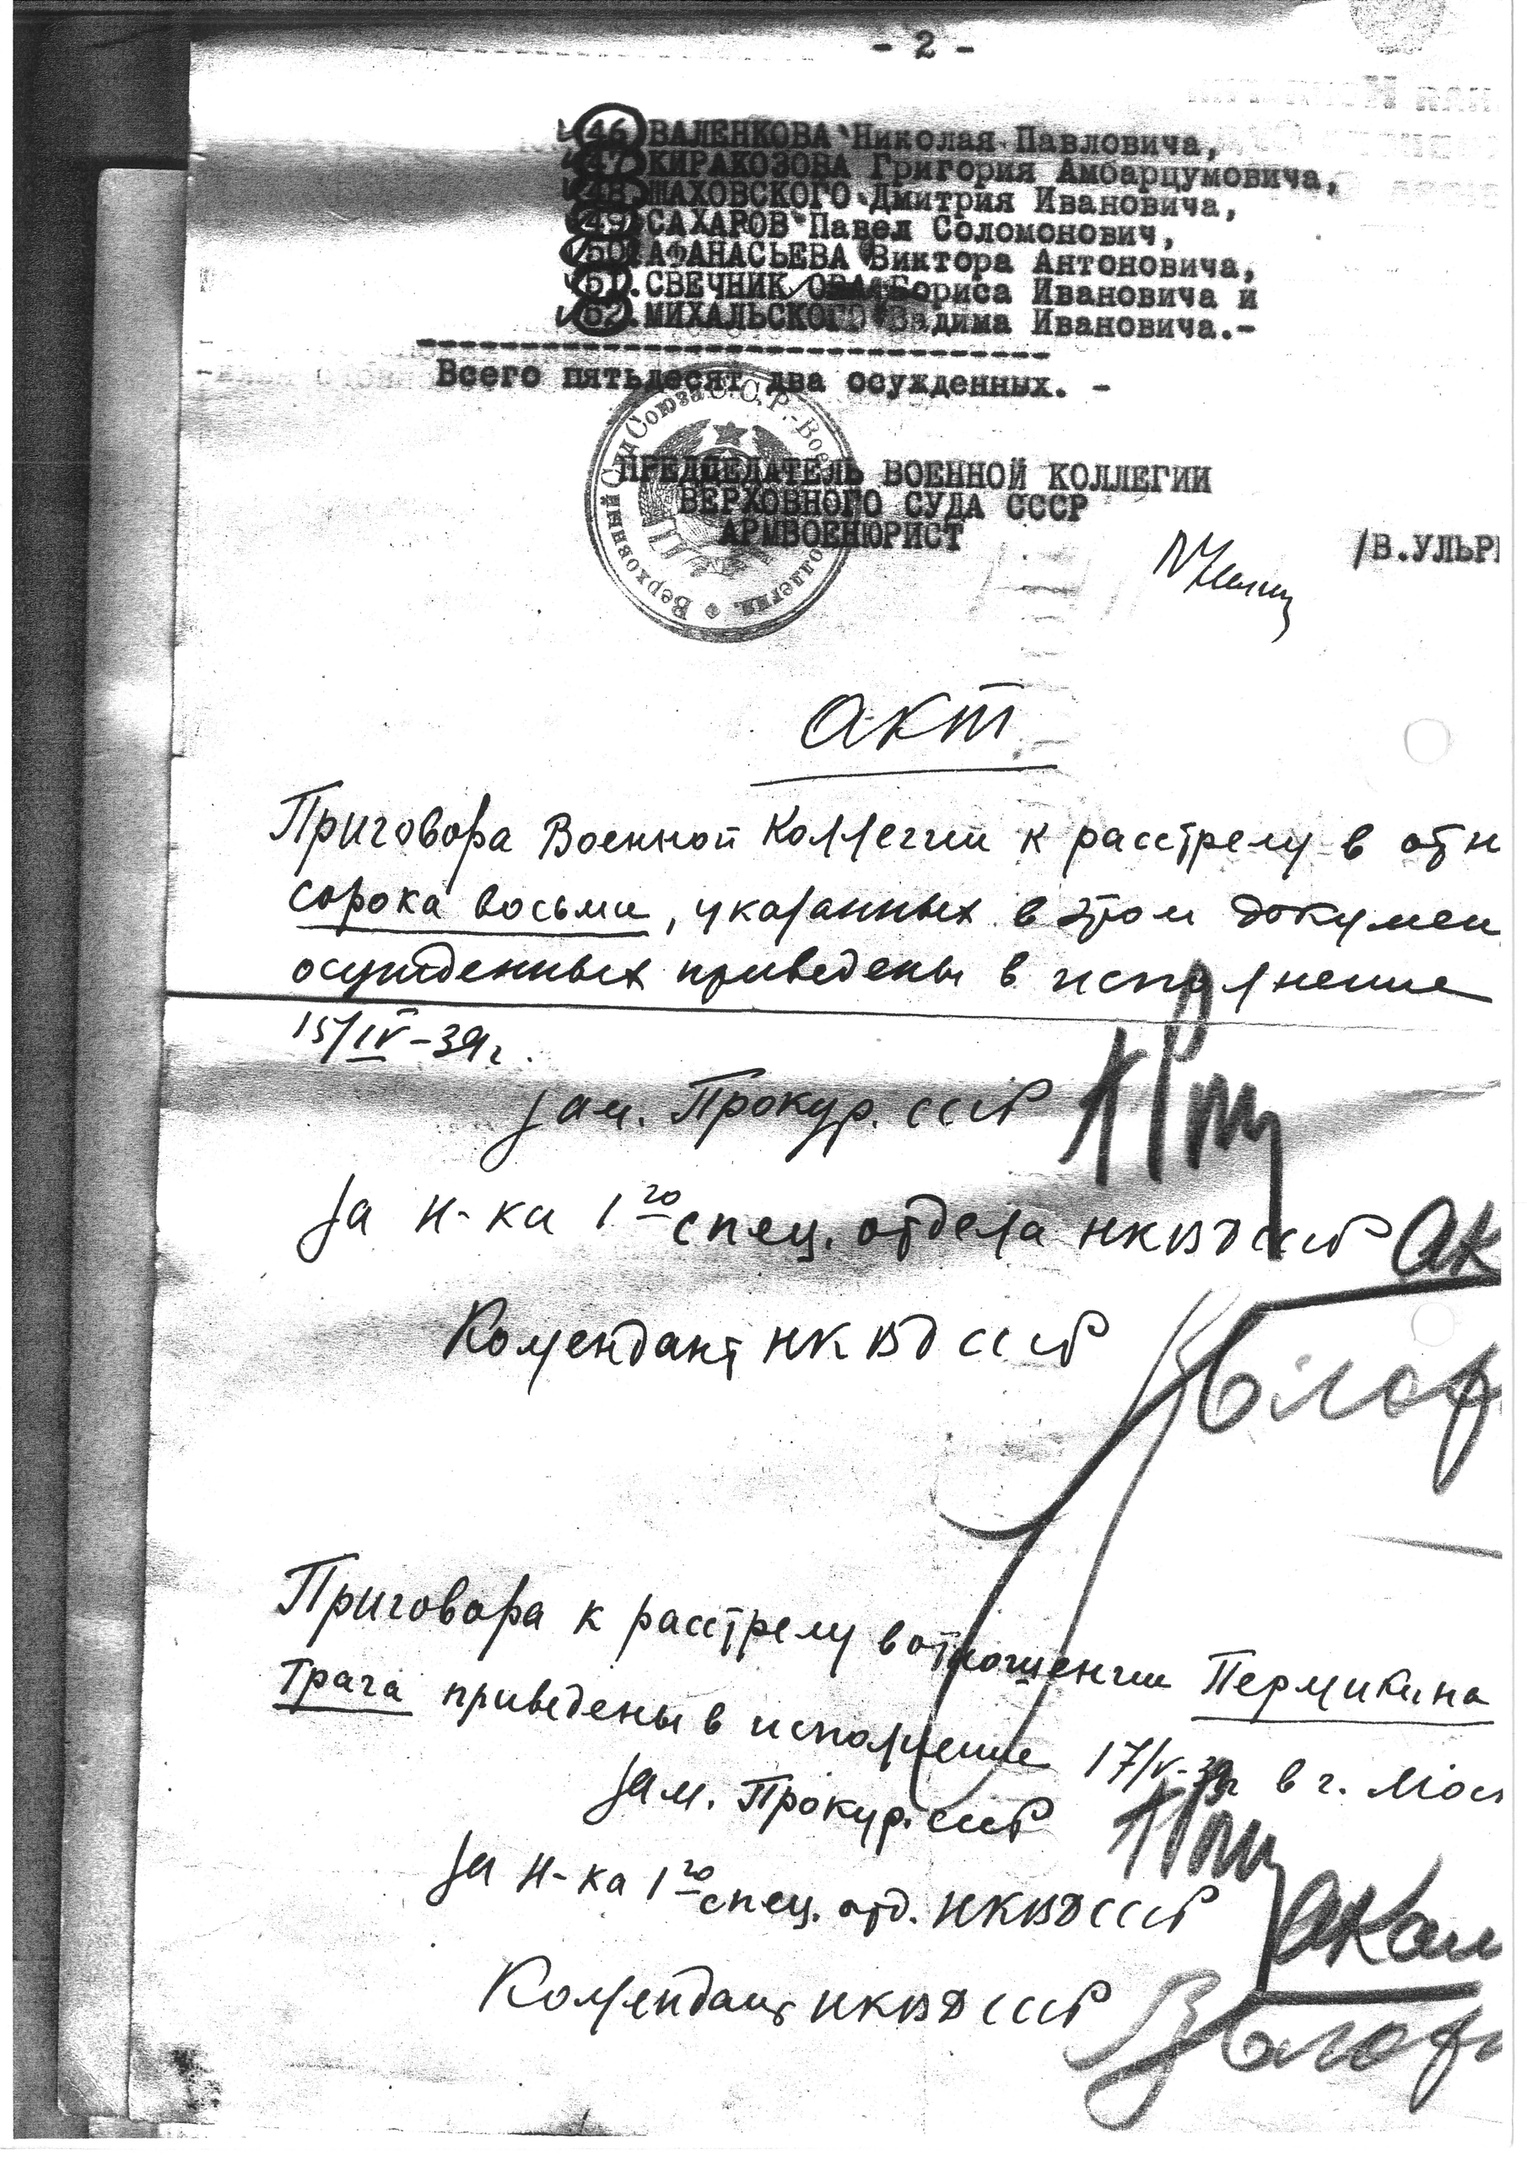 - 2 -
46. ВАЛЕНКОВА Николая Павловича,
47. КИРАКОЗОВА Григория Амбарцумовича,
48. ШАХОВСКОГО Дмитрия Ивановича,
49. САХАРОВ Павел Соломонович,
50. АФАНАСЬЕВА Виктора Антоновича,
51. СВЕЧНИК Бориса Ивановича и
52. МИХАЛЬСКОГО Вадима Ивановича.-
Всего пятьдесят два осужденных. -
Верховный Суд Союза С.С.Р.-
ПРЕДСЕДАТЕЛЬ ВОЕННОЙ КОЛЛЕГИИ
ВЕРХОВНОГО СУДА СССР
АРМВОЕНЮРИСТ
/В.УЛЬР
Акт
Приговора Военной Коллегии к расстрелу в отн
сорока восьми, указанных в этом докумен
осужденных приведены в исполнение
15/IV-39г.
Зам. Прокур. СССР
За Н-ка 1го спец. отдела НКВД СССР
Комендант НКВД СССР
Приговора к расстрелу в отношении Пермикина
Трача приведены в исполнение 17/V-39г в г. Мос
Зам. Прокур. СССР
За Н-ка 1го спец. отд. НКВД СССР
Комендант НКВД СССР